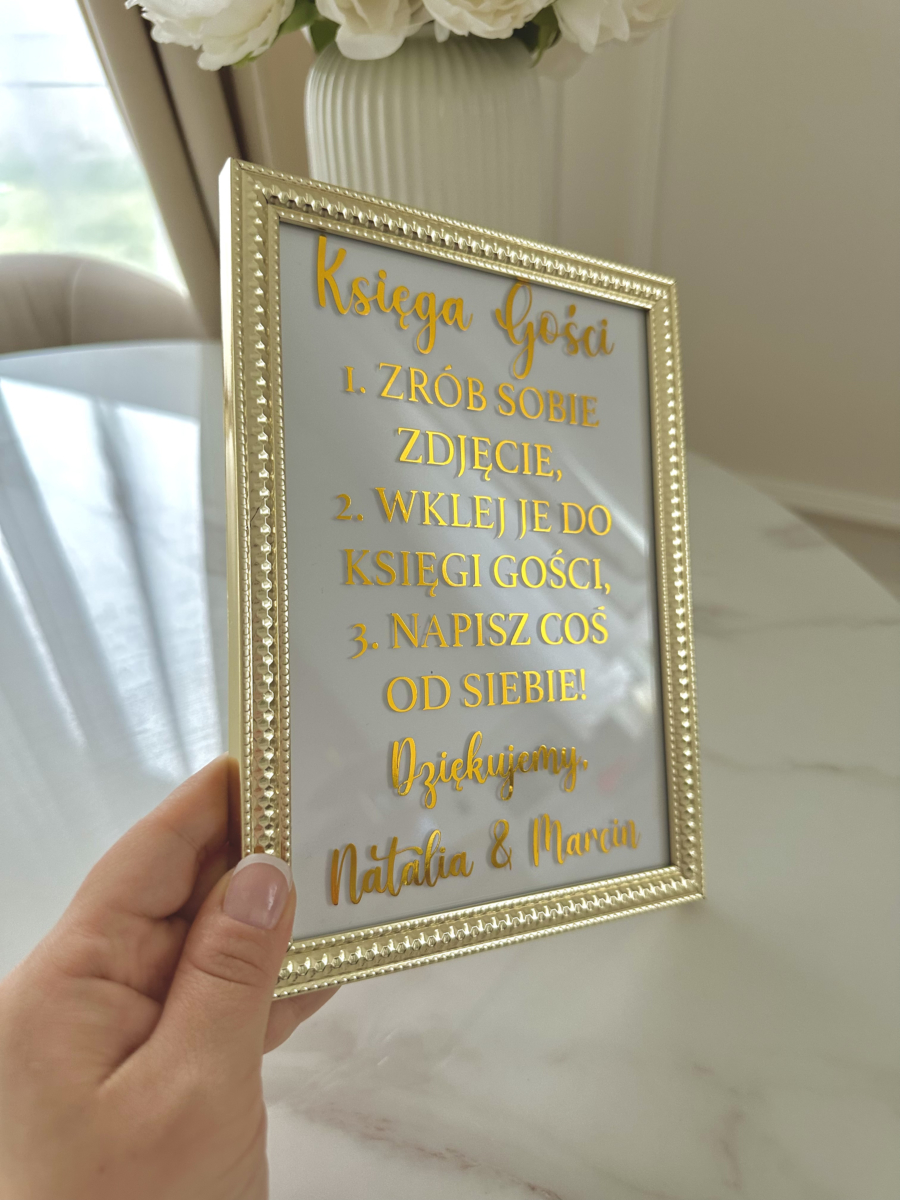 Księga Gości
1. ZRÓB SOBIE
ZDJĘCIE,
2. WKLEJ JE DO
KSIĘGI GOŚCI,
3. NAPISZ COŚ
OD SIEBIE!
Dziękujemy,
Natalia & Marcin